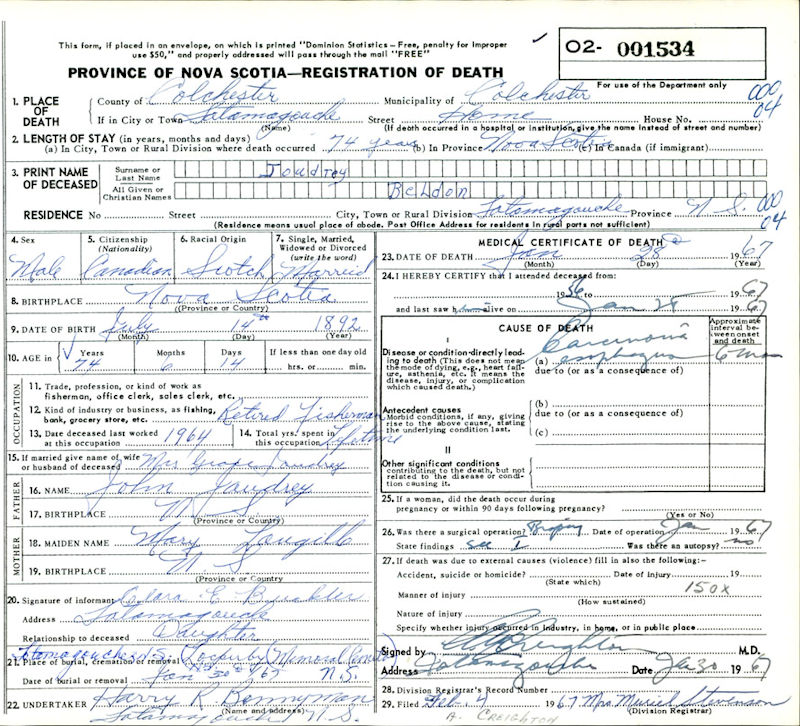 This form, if placed in an envelope, on which is printed "Dominion Statistics – Free, penalty for improper
use $50," and properly addressed will pass through the mail "FREE"
02- 001534
PROVINCE OF NOVA SCOTIA—REGISTRATION OF DEATH
For use of the Department only
000
04
1. PLACE OF DEATH
County of Colchester Municipality of Colchester
If in City or Town Tatamagouche Street Home House No.
(Name) (If death occurred in a hospital or institution, give the name instead of street and number)
2. LENGTH OF STAY (in years, months and days)
(a) In City, Town or Rural Division where death occurred 74 years (b) In Province Nova Scotia (c) In Canada (if immigrant)
3. PRINT NAME OF DECEASED
Surname or Last Name Joudrey
All Given or Christian Names Beldon
RESIDENCE No Street City, Town or Rural Division Tatamagouche Province N S. 000 04
(Residence means usual place of abode. Post Office Address for residents in rural parts not sufficient)
4. Sex Male
5. Citizenship (Nationality) Canadian
6. Racial Origin Scotch
7. Single, Married, Widowed or Divorced (write the word)
8. BIRTHPLACE Nova Scotia
(Province or Country)
9. DATE OF BIRTH July 14th 1892
(Month) (Day) (Year)
10. AGE in Years 74 Months 6 Days 14 If less than one day old
hrs. or min.
OCCUPATION
11. Trade, profession, or kind of work as
fisherman, office clerk, sales clerk, etc.
12. Kind of industry or business, as fishing,
bank, grocery store, etc. Retired Fisherman
13. Date deceased last worked at this occupation 1964
14. Total yrs. spent in this occupation Lifetime
15. If married give name of wife
or husband of deceased Mrs
FATHER
16. NAME John
17. BIRTHPLACE N S.
(Province or Country)
MOTHER
18. MAIDEN NAME Mary
19. BIRTHPLACE N S
(Province or Country)
20. Signature of informant Clara E
Address Tatamagouche
Relationship to deceased Daughter
Tatamagouche N.S. Memorial
21. Place of burial, cremation or removal
Date of burial or removal Jan 30 67 N.S.
22. UNDERTAKER Harry R
(Name and address)
Tatamagouche N. S.
MEDICAL CERTIFICATE OF DEATH
23. DATE OF DEATH Jan 28 1967
(Month) (Day) (Year)
24. I HEREBY CERTIFY that I attended deceased from:
1956 to 1967
and last saw him alive on Jan 28 1967
CAUSE OF DEATH
Approximate interval between onset and death
I
Disease or condition directly leading to death (This does not mean the mode of dying, e.g., heart failure, asthenia, etc. It means the disease, injury, or complication which caused death.)
(a) Carcinoma esophagus 6 mos
due to (or as a consequence of)
Antecedent causes
Morbid conditions, if any, giving rise to the above cause, stating the underlying condition last.
(b)
due to (or as a consequence of)
(c)
II
Other significant conditions
contributing to the death, but not related to the disease or condition causing it.
25. If a woman, did the death occur during
pregnancy or within 90 days following pregnancy?
(Yes or No)
26. Was there a surgical operation? Biopsy Date of operation Jan 1967
State findings see I Was there an autopsy? no
27. If death was due to external causes (violence) fill in also the following:-
Accident, suicide or homicide? Date of injury 19
(State which)
150X
Manner of injury
(How sustained)
Nature of injury
Specify whether injury occurred in industry, in home, or in public place
Signed by Creighton M.D.
Address Tatamagouche Date Jan 30 1967
28. Division Registrar's Record Number
29. Filed Feb 1967 Mrs. Muriel Stevenson
(Division Registrar)
A. CREIGHTON